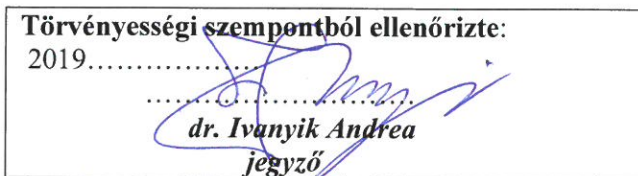 Törvényességi szempontból ellenőrizte:
2019....................
................................
dr. Ivanyik Andrea
jegyző